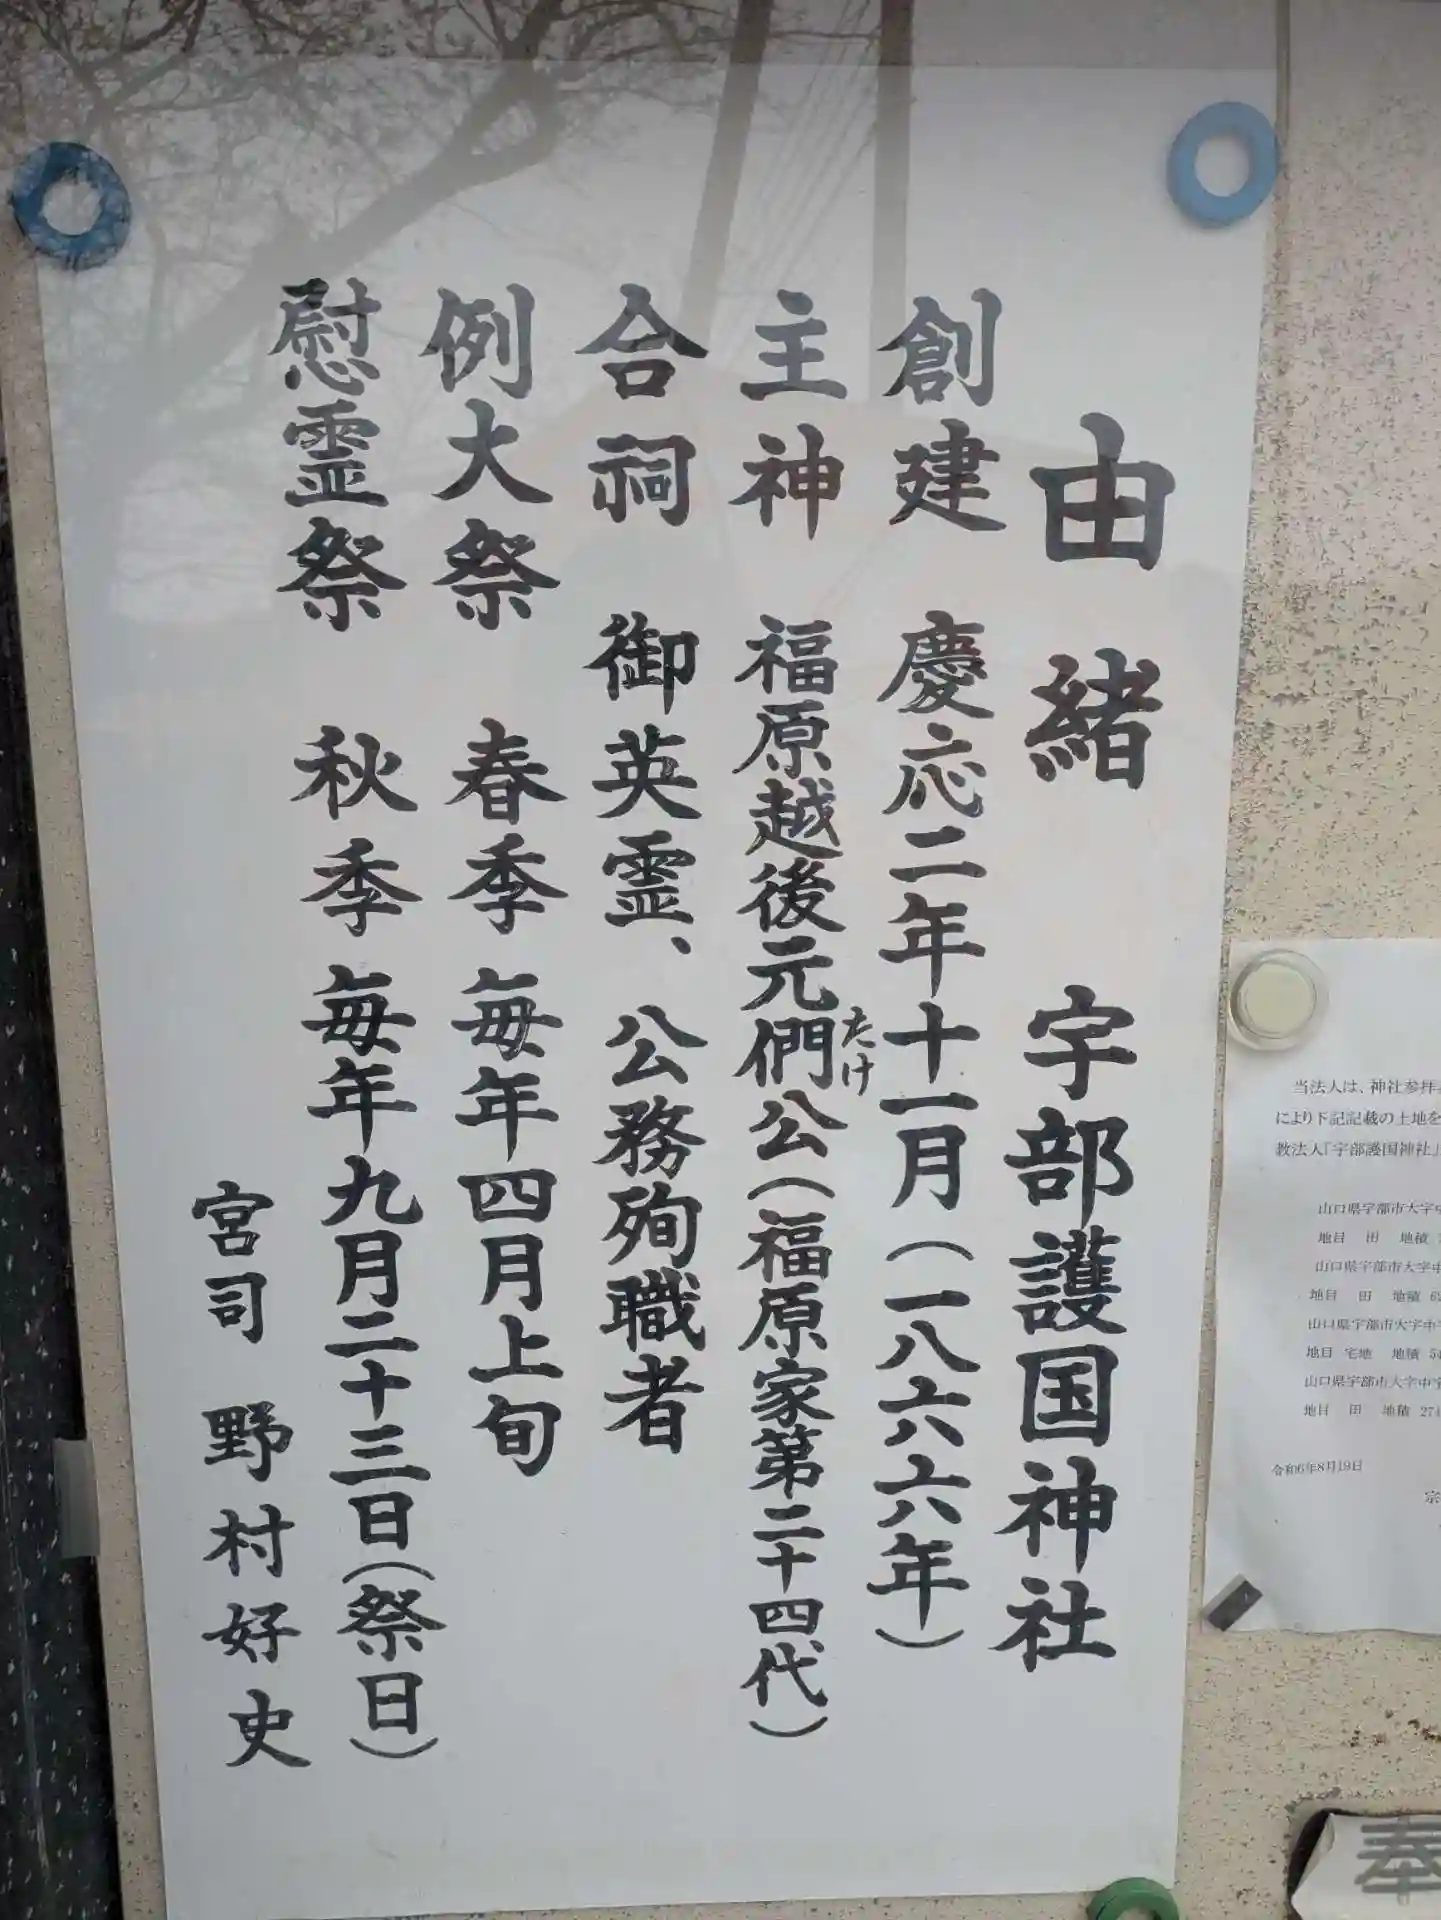 由緒　宇部護国神社
創建　慶応二年十一月（一八六六年）
主神　福原越後元們公（福原家第二十四代）
たけ
合祠　御英霊、公務殉職者
例大祭　春季　毎年四月上旬
慰霊祭　秋季　毎年九月二十三日（祭日）
宮司　野村好史
当法人は、神社参拝
により下記記載の土地を
教法人「宇部護国神社」
山口県宇部市大字中
地目　田　地積
山口県宇部市大字中
地目　田　地積 6
山口県宇部市大字中
地目　宅地　地積 5
山口県宇部市大字中
地目　田　地積 274
令和6年8月19日
宗
奉